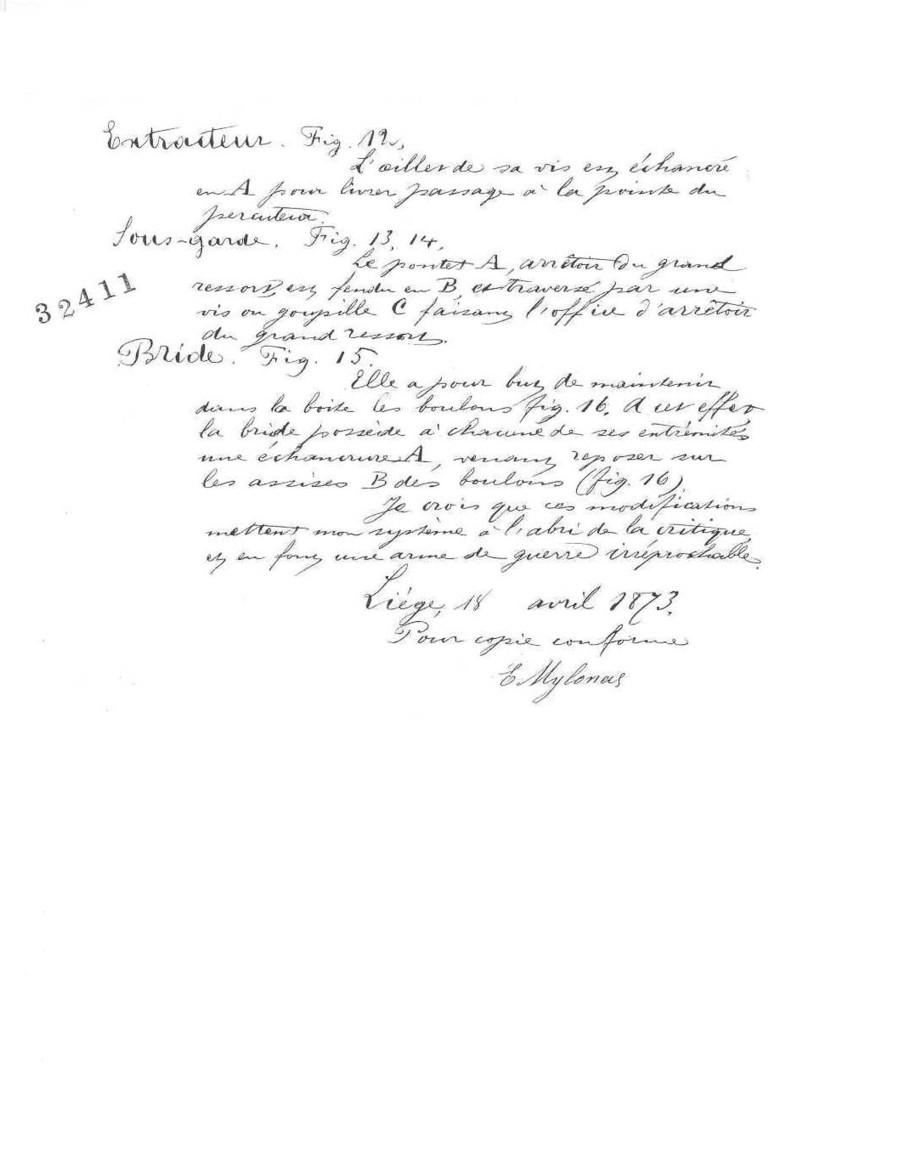 Extracteur. Fig. 12.
L'œillet de sa vis est échancré
en A pour livrer passage à la pointe du
percuteur.
Sous-garde. Fig. 13, 14.
Le pontet A, arrêtoir du grand
ressort, est fendu en B, et traversé par une
32411
vis ou goupille C faisant l'office d'arrêtoir
du grand ressort.
Bride. Fig. 15.
Elle a pour but de maintenir
dans la boite les boulons fig. 16. A cet effet
la bride possède à chacune de ses extrémités
une échancrure A, venant reposer sur
les assises B des boulons (fig. 16)
Je crois que ces modifications
mettent mon système à l'abri de la critique
et en font une arme de guerre irréprochable.
Liége, 18 avril 1873.
Pour copie conforme
E Mylonas